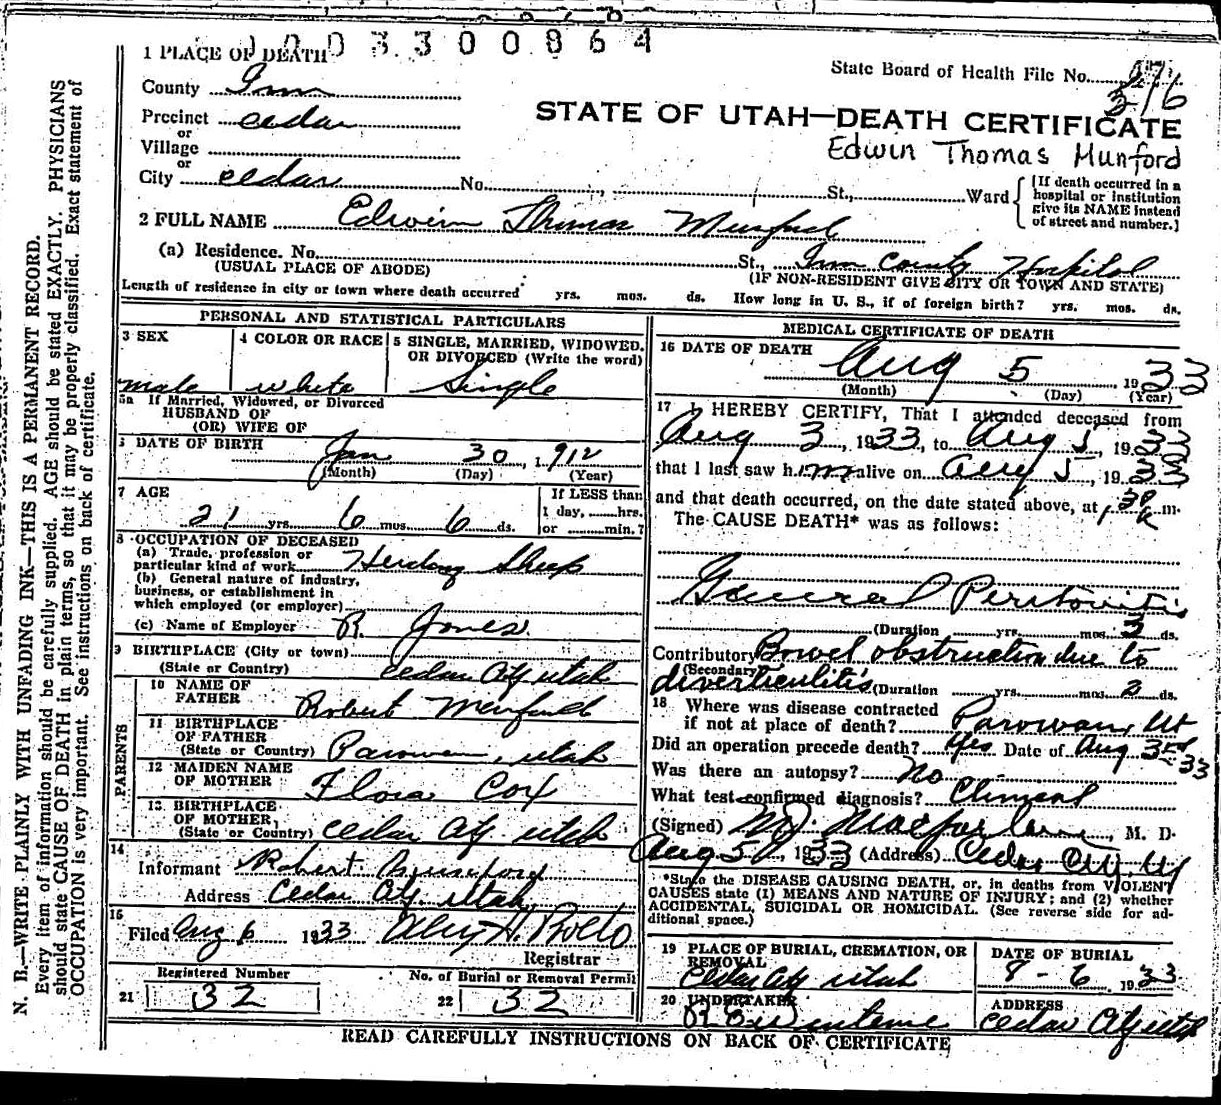 1 PLACE OF DEATH
1003300864
State Board of Health File No. 276
County Iron
316
Precinct Cedar
STATE OF UTAH—DEATH CERTIFICATE
or
Village
Edwin Thomas Munford
or
City Cedar No. , St., Ward
[If death occurred in a hospital or institution give its NAME instead of street and number.]
2 FULL NAME Edwin Thomas Munford
(a) Residence. No. St., Iron County Hospital
(USUAL PLACE OF ABODE) (IF NON-RESIDENT GIVE CITY OR TOWN AND STATE)
Length of residence in city or town where death occurred yrs. mos. ds. How long in U. S., if of foreign birth? yrs. mos. ds.
PERSONAL AND STATISTICAL PARTICULARS
3 SEX
male
4 COLOR OR RACE
white
5 SINGLE, MARRIED, WIDOWED, OR DIVORCED (Write the word)
Single
5a If Married, Widowed, or Divorced
HUSBAND OF
(OR) WIFE OF
6 DATE OF BIRTH
Jan 30, 1912
(Month) (Day) (Year)
7 AGE
21 yrs. 6 mos. 6 ds.
If LESS than
1 day, hrs.
or min.?
8 OCCUPATION OF DECEASED
(a) Trade, profession or
particular kind of work Herding Sheep
(b) General nature of industry,
business, or establishment in
which employed (or employer)
(c) Name of Employer R. Jones.
9 BIRTHPLACE (City or town)
(State or Country) Cedar City Utah
PARENTS
10 NAME OF
FATHER Robert Munford
11 BIRTHPLACE
OF FATHER
(State or Country) Parowan, Utah
12 MAIDEN NAME
OF MOTHER Flora Cox
13 BIRTHPLACE
OF MOTHER,
(State or Country) Cedar City Utah
14
Informant Robert Munford
Address Cedar City Utah
15
Filed Aug 6 1933
Registrar
Registered Number
21 32
No. of Burial or Removal Permit
22 32
MEDICAL CERTIFICATE OF DEATH
16 DATE OF DEATH
Aug 5, 1933
(Month) (Day) (Year)
17 I HEREBY CERTIFY, That I attended deceased from
Aug 3, 1933, to Aug 5, 1933
that I last saw him alive on Aug 5, 1933
and that death occurred, on the date stated above, at 1 30 m.
The CAUSE DEATH* was as follows:
General Peritonitis
(Duration yrs. mos. 2 ds.
Contributory Bowel obstruction due to
(Secondary)
diverticulitis (Duration yrs. mos. 2 ds.
18 Where was disease contracted
if not at place of death? Parowan, Ut
Did an operation precede death? Yes Date of Aug 3rd 33
Was there an autopsy? No
What test confirmed diagnosis? Clinical
(Signed) M.J. Macfarlane, M. D.
Aug 5, 1933 (Address) Cedar City, Ut
*State the DISEASE CAUSING DEATH, or, in deaths from VIOLENT
CAUSES state (1) MEANS AND NATURE OF INJURY; and (2) whether
ACCIDENTAL, SUICIDAL OR HOMICIDAL. (See reverse side for ad-
ditional space.)
19 PLACE OF BURIAL, CREMATION, OR
REMOVAL
Cedar City Utah
DATE OF BURIAL
8-6 1933
20 UNDERTAKER
ADDRESS
Cedar City Utah
READ CAREFULLY INSTRUCTIONS ON BACK OF CERTIFICATE
N. B.—WRITE PLAINLY WITH UNFADING INK—THIS IS A PERMANENT RECORD.
Every item of information should be carefully supplied. AGE should be stated EXACTLY. PHYSICIANS
should state CAUSE OF DEATH in plain terms, so that it may be properly classified. Exact statement of
OCCUPATION is very important. See instructions on back of certificate.